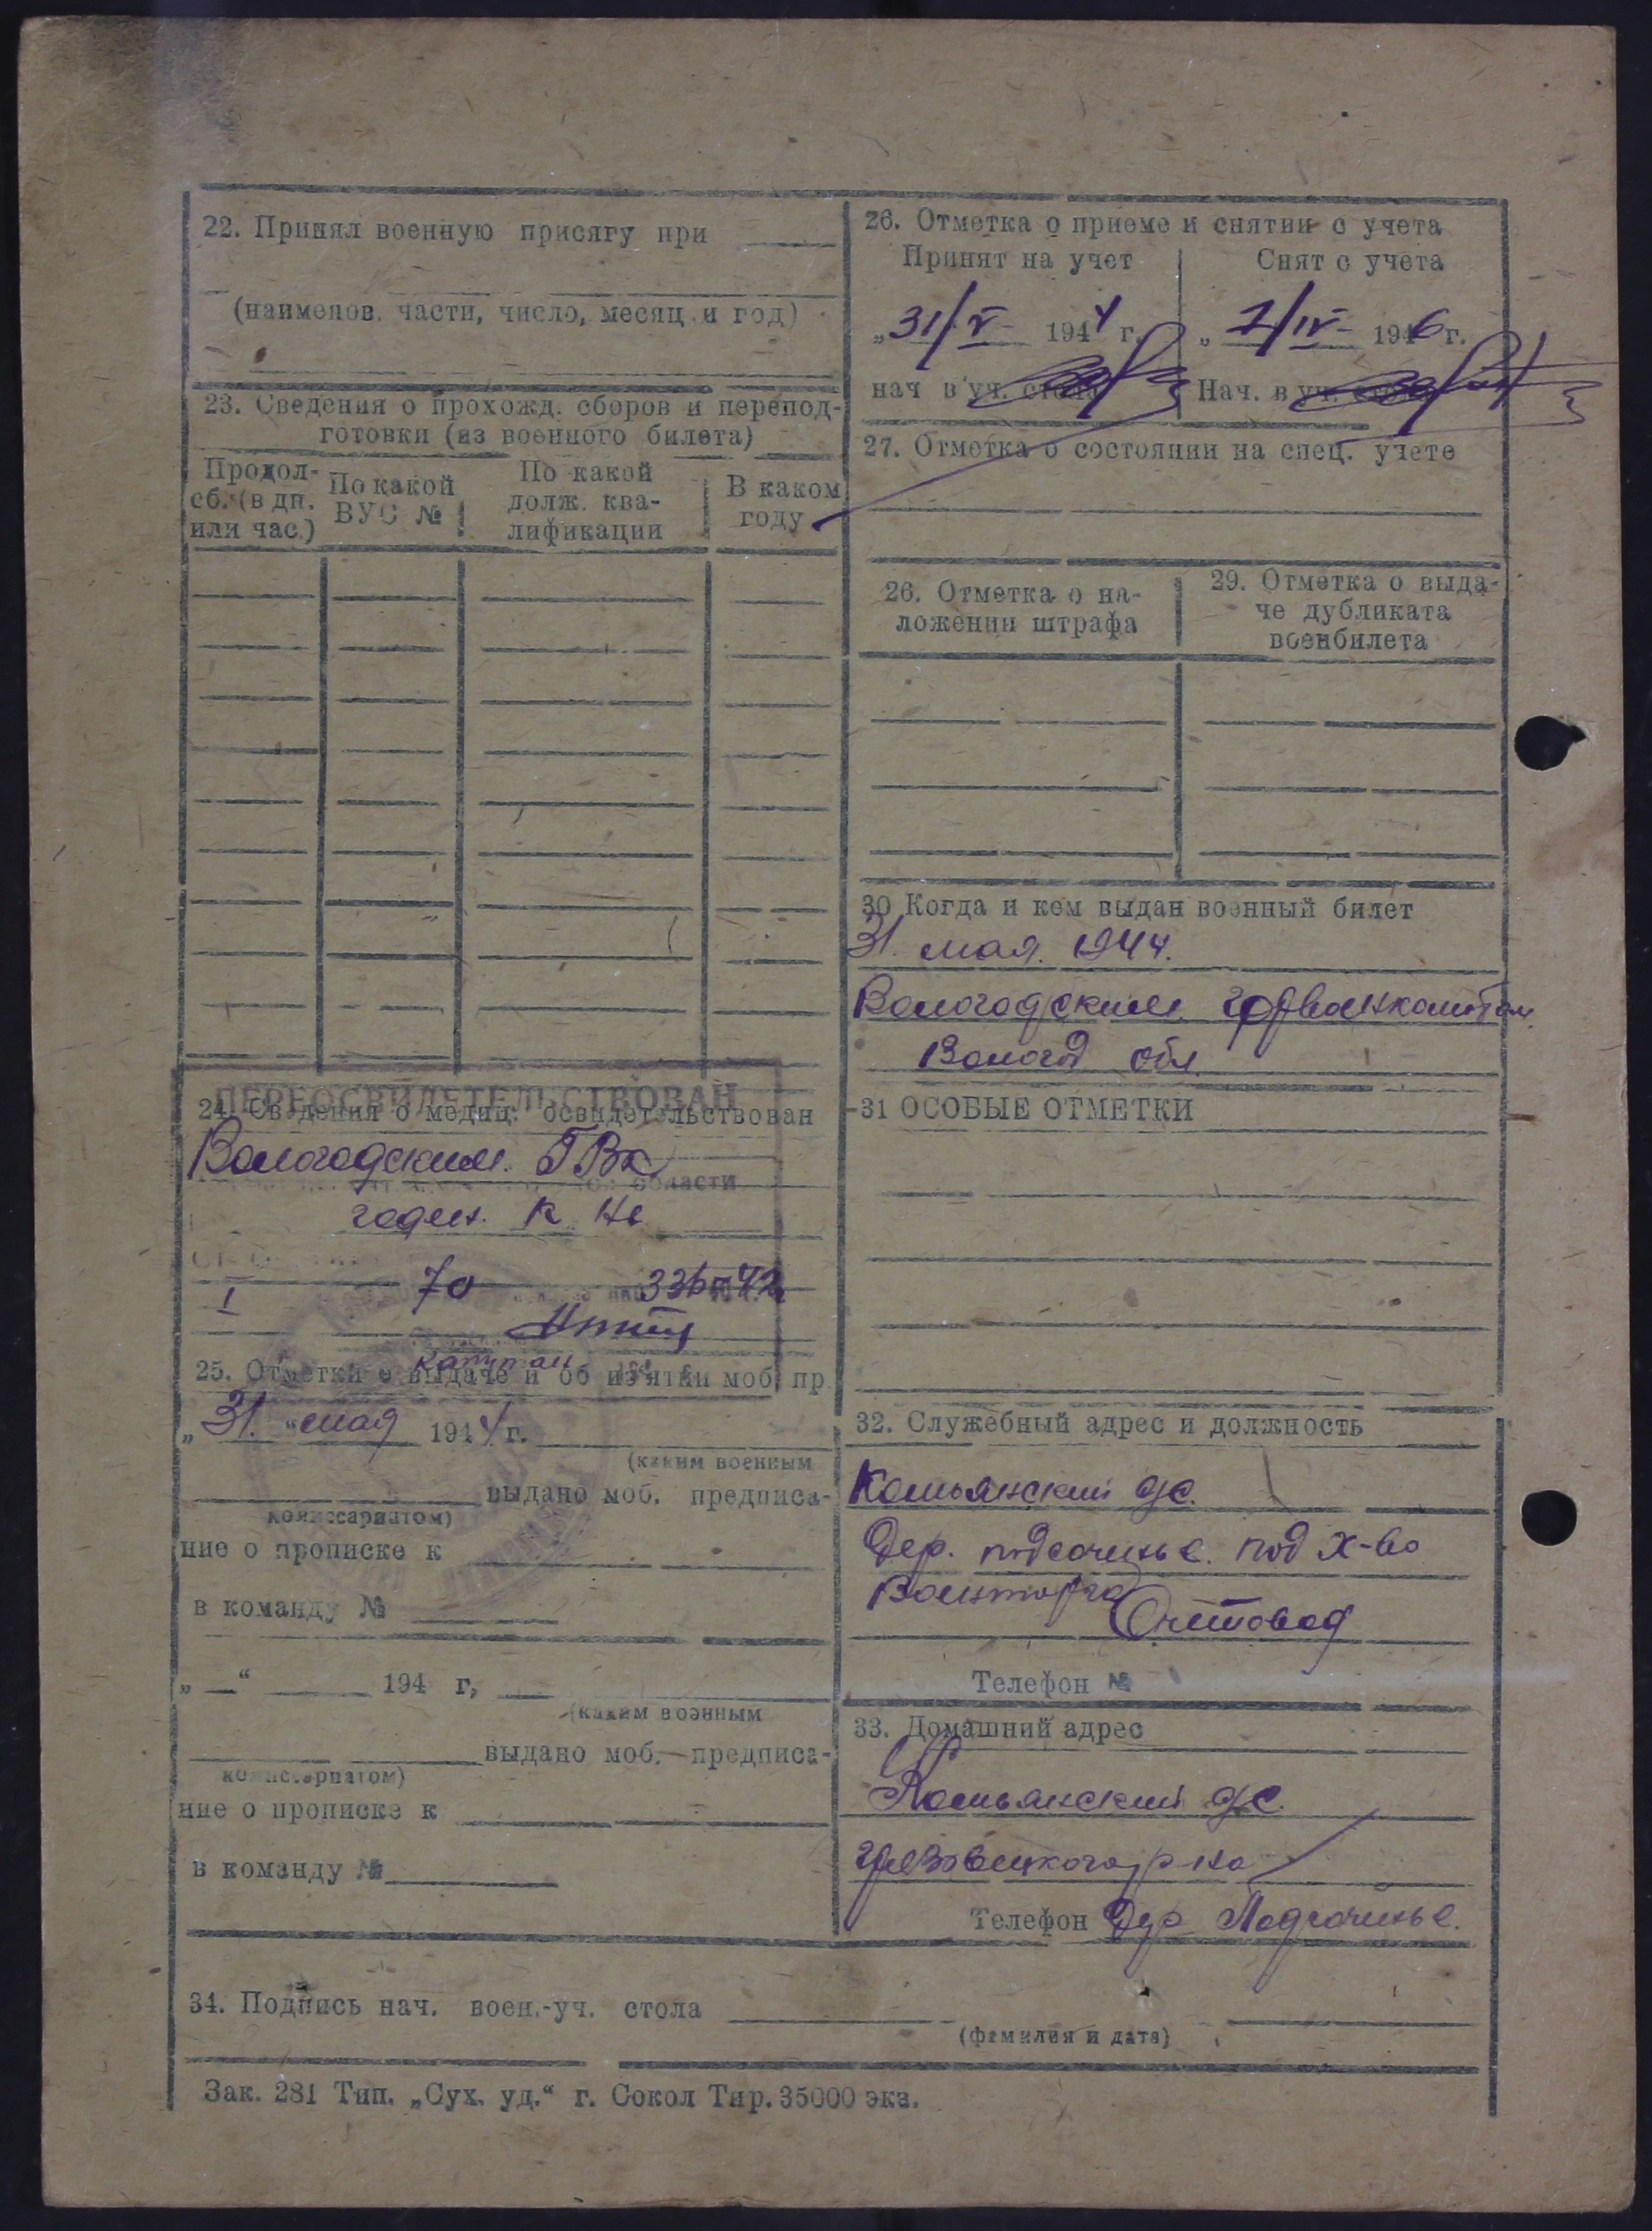 22. Принял военную присягу при
(наименов. части, число, месяц и год)
23. Сведения о прохожд. сборов и перепод-
готовки (из военного билета)
Продол-
сб. (в дн.
или час.)
По какой
ВУС №
По какой
долж. ква-
лификации
В каком
году
ПЕРЕОСВИДЕТЕЛЬСТВОВАН
24. Сведения о медиц. освидетельствован
Вологодским ГВК
области
годен к
I 70 336-42
капитан
25. Отметки о выдаче и об из'ятии моб. пр.
„31“ мая 1944 г.
(каким военным
выдано моб. предписа-
комиссариатом)
ние о прописке к
в команду №
„ “ 194 г,
(каким военным
выдано моб. предписа-
комиссариатом)
ние о прописке к
в команду №
26. Отметка о приеме и снятии с учета
Принят на учет
Снят с учета
„31/V 1944 г.
„1/IV 1946 г.
нач в уч. стола
Нач. в уч. стола
27. Отметка о состоянии на спец. учете
26. Отметка о на-
ложении штрафа
29. Отметка о выда-
че дубликата
военбилета
30 Когда и кем выдан военный билет
31 мая 1944.
Вологодским горвоенкоматом
Волог обл.
31 ОСОБЫЕ ОТМЕТКИ
32. Служебный адрес и должность
Комьянский с/с.
Дер. подсочинье. под х-во
Военторга
Счетовод
Телефон №
33. Домашний адрес
Комьянский с/с.
Грязовецкого р-на
Телефон Дер Подсочинье.
34. Подпись нач. воен.-уч. стола
(фамилия и дата)
Зак. 281 Тип. „Сух. уд.“ г. Сокол Тир. 35000 экз.